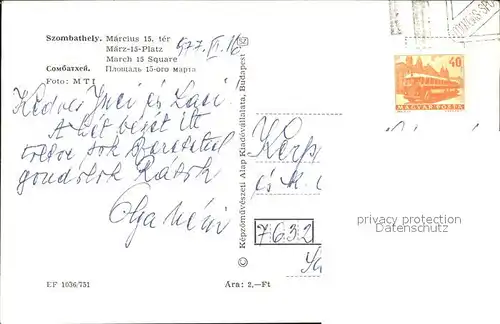 Szombathely. Március 15. tér
März-15-Platz
March 15 Square
Сомбатхей. Площадь 15-ого марта
Foto: MTI
977. VI. 16
Kedves Inci és Laci!
A hét végét itt
töltve sok szeretettel
gondolok Rátok
Olga néni
Képzőművészeti Alap Kiadóvállalata, Budapest
40
MAGYAR POSTA
és
7632
privacy protection
Datenschutz
EF 1036/751
Ára: 2,—Ft